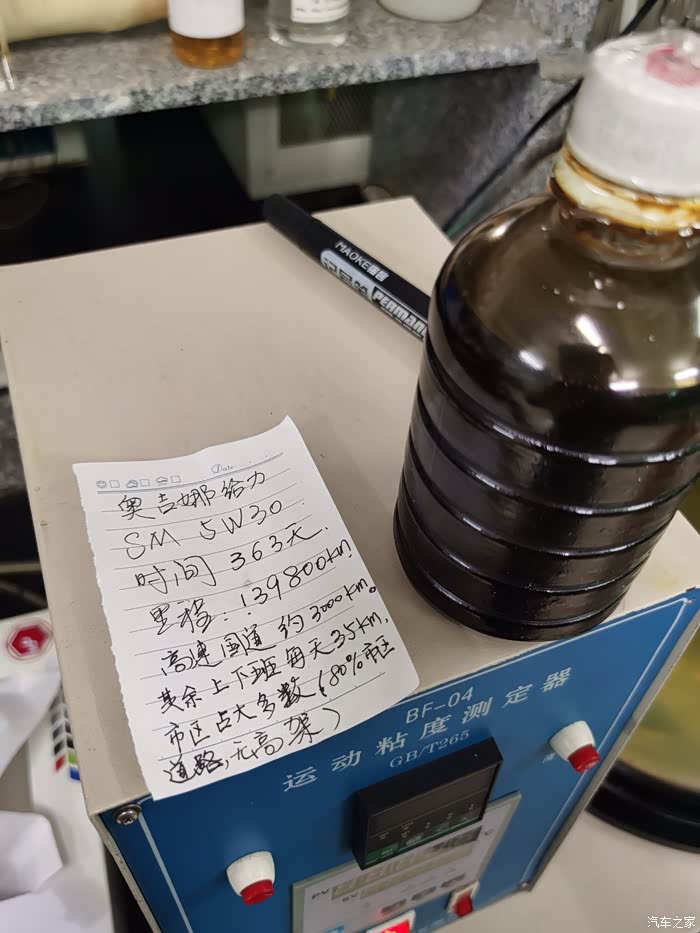 MAOKE
记号笔
PERMAN
Date:
奥吉娜给力
SM 5W30
时间 363天.
里程: 139800km
高速国道约3000km。
其余上下班每天35km,
市区占大多数(80%市区
道路,无高架)
BF-04
运动粘度测定器
GB/T265
PV
SV
汽车之家